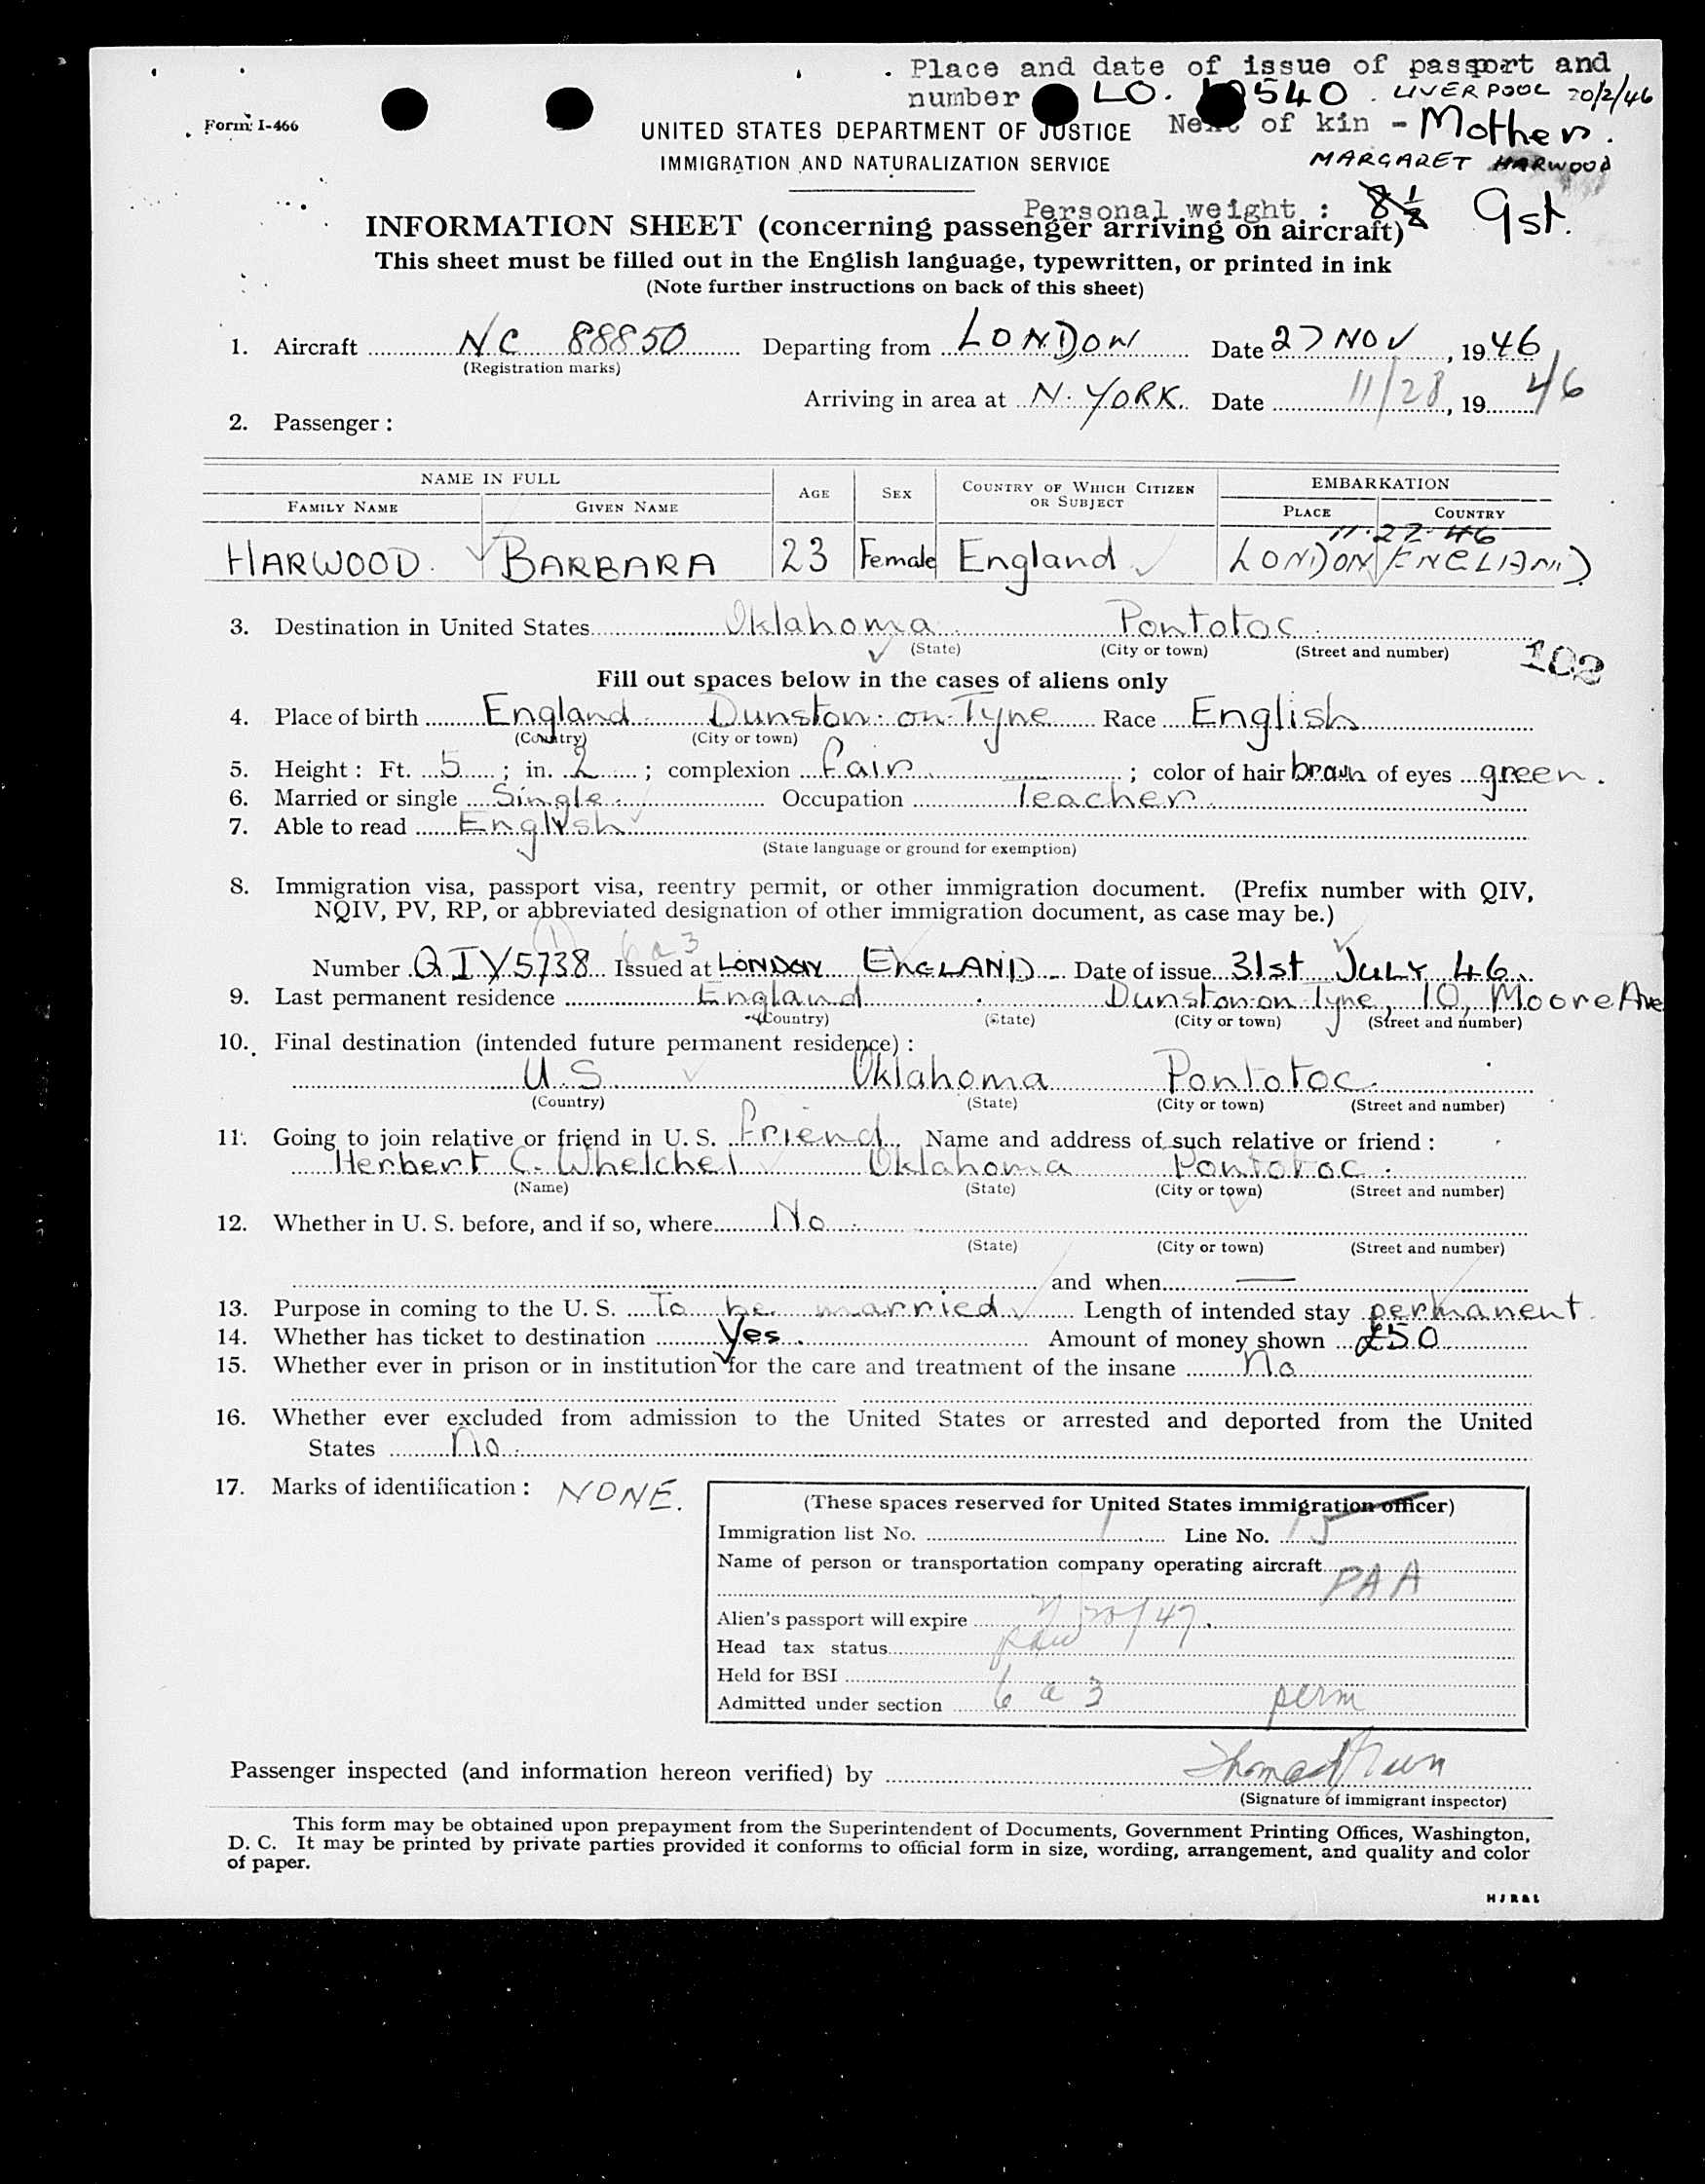 Place and date of issue of passport and
number LO. 540. LIVERPOOL 20/2/46
Form I-466
UNITED STATES DEPARTMENT OF JUSTICE Next of kin - Mother.
IMMIGRATION AND NATURALIZATION SERVICE MARGARET HARWOOD
Personal weight : 9st.
INFORMATION SHEET (concerning passenger arriving on aircraft)
This sheet must be filled out in the English language, typewritten, or printed in ink
(Note further instructions on back of this sheet)
1. Aircraft NC 88850 Departing from LONDON Date 27 NOV, 1946
(Registration marks)
Arriving in area at N. YORK. Date 11/28, 19 46
2. Passenger :
NAME IN FULL AGE SEX COUNTRY OF WHICH CITIZEN OR SUBJECT EMBARKATION
FAMILY NAME GIVEN NAME PLACE COUNTRY
11-27-46
HARWOOD. BARBARA 23 Female England LONDON ENGLAND
3. Destination in United States Oklahoma Pontotoc.
(State) (City or town) (Street and number)
102
Fill out spaces below in the cases of aliens only
4. Place of birth England Dunston-on-Tyne Race English
(Country) (City or town)
5. Height : Ft. 5 ; in. 2 ; complexion fair ; color of hair brown of eyes green.
6. Married or single Single Occupation Teacher
7. Able to read English
(State language or ground for exemption)
8. Immigration visa, passport visa, reentry permit, or other immigration document. (Prefix number with QIV,
NQIV, PV, RP, or abbreviated designation of other immigration document, as case may be.)
6 a 3
Number QIV 5738 Issued at LONDON ENGLAND Date of issue 31st JULY 46.
9. Last permanent residence England Dunston-on-Tyne, 10, Moore Ave
(Country) (State) (City or town) (Street and number)
10. Final destination (intended future permanent residence) :
U.S Oklahoma Pontotoc.
(Country) (State) (City or town) (Street and number)
11. Going to join relative or friend in U. S. friend Name and address of such relative or friend :
Herbert C. Whelchel Oklahoma Pontotoc.
(Name) (State) (City or town) (Street and number)
12. Whether in U. S. before, and if so, where No
(State) (City or town) (Street and number)
and when —
13. Purpose in coming to the U. S. To be married Length of intended stay permanent.
14. Whether has ticket to destination Yes. Amount of money shown £50
15. Whether ever in prison or in institution for the care and treatment of the insane No
16. Whether ever excluded from admission to the United States or arrested and deported from the United
States No.
17. Marks of identification : NONE.
(These spaces reserved for United States immigration officer)
Immigration list No. 1 Line No. 15
Name of person or transportation company operating aircraft
PAA
Alien's passport will expire /47
Head tax status
Held for BSI
Admitted under section 6 a 3 perm
Passenger inspected (and information hereon verified) by Thomas
(Signature of immigrant inspector)
This form may be obtained upon prepayment from the Superintendent of Documents, Government Printing Offices, Washington,
D. C. It may be printed by private parties provided it conforms to official form in size, wording, arrangement, and quality and color
of paper.